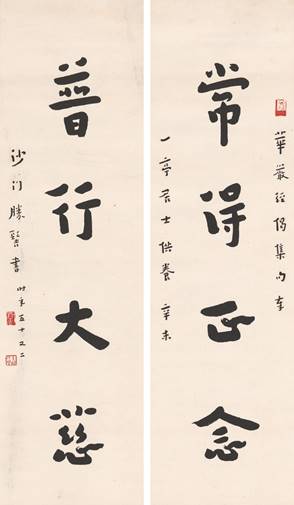 華嚴經偈集句奉
常得正念
一亭居士供養 辛未
普行大慈
沙門勝髻書 時年五十又二